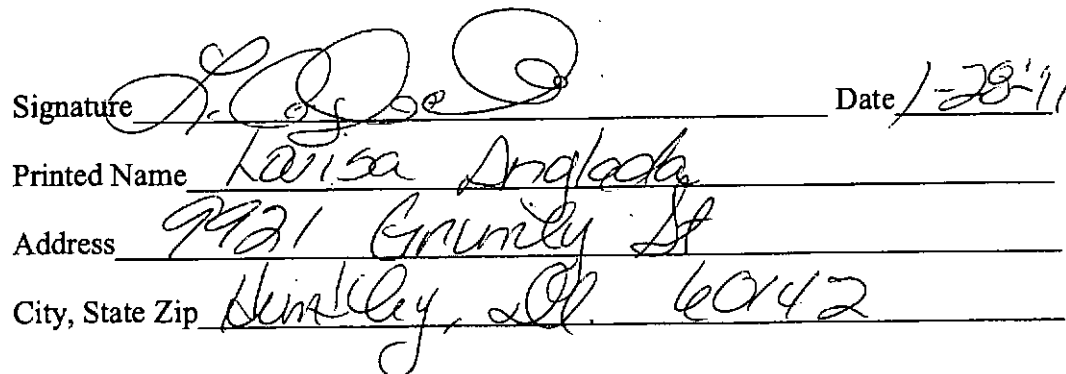 Signature Date 1-28-11
Printed Name Larisa Anglada
Address 9921 St
City, State Zip Huntley, Il. 60142